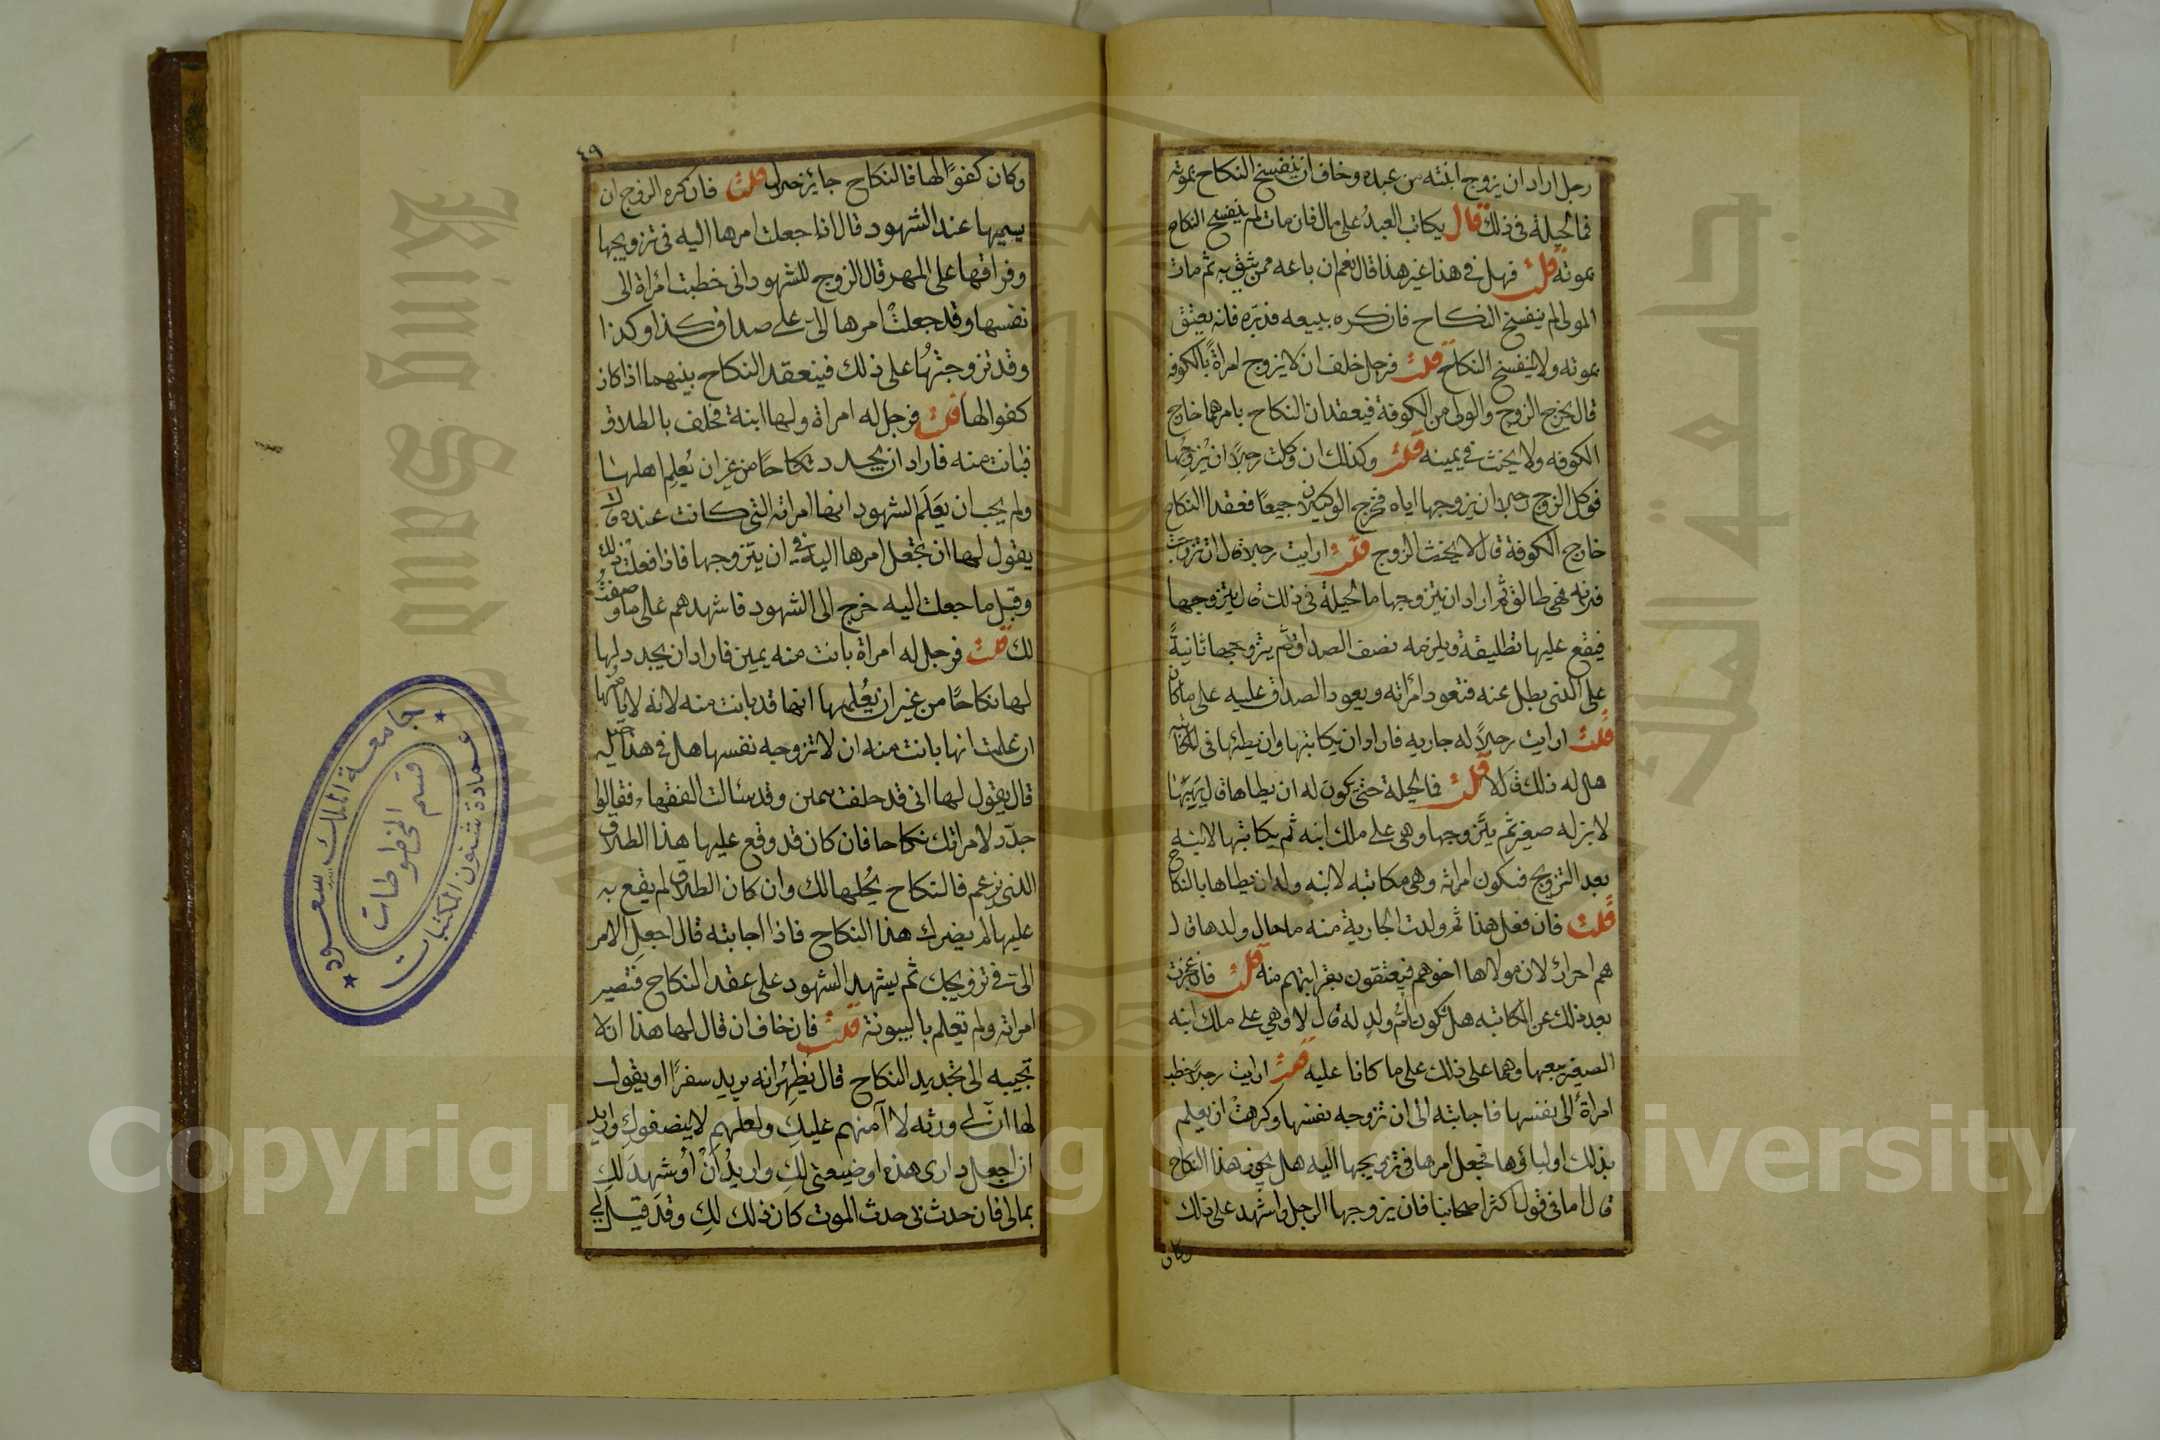 رجل اراد ان يزوج ابنته من عبده وخاف ان ينفسخ النكاح بموته
فما الحيلة في ذلك قال يكاتب العبد على مال فان مات لم ينفسخ النكاح
بموته قلت فهل في هذا غير هذا قال نعم ان باعه ممن يثق به ثم مات
المولى لم ينفسخ النكاح فان كره بيعه فدبره فانه يعتق
بموته ولا ينفسخ النكاح قلت فرجل حلف ان لا يزوج امراة بالكوفه
قال يخرج الزوج والولى من الكوفة فيعقدان النكاح بامرهما خارج
الكوفه ولا يحنث في يمينه قلت وكذلك ان وكلت رجلا ان يزوجها
فوكل الزوج رجلا ان يزوجها اياه فخرج الوكيلان جميعا فعقدا النكاح
خارج الكوفة قال لا يحنث الزوج قلت ارايت رجلا قال ان تزوجت
فلانه فهى طالق ثم اراد ان يتزوجها ما الحيلة في ذلك قال يتزوجها
فيقع عليها تطليقة ويلزمه نصف الصداق ثم يتزوجها ثانية
على الذى بطل عنه فتعود امراته ويعود الصداق عليه على ما كان
قلت ارايت رجلا له جاريه فاراد ان يكاتبها وان يطئها في المكاتبة
هل له ذلك قال لا قلت فالحيلة حتى يكون له ان يطاها قال يهبها
لابن له صغير ثم يتزوجها وهى على ملك ابنه ثم يكاتبها لابنه
بعد التزويج فتكون امراته وهى مكاتبه لابنه وله ان يطاها بالنكاح
قلت فان فعل هذا ثم ولدت الجارية منه ما حال ولدها قال
هم احرار لان مولاها اخوهم فيعتقون بقرابتهم منه قلت فان عجزت
بعد ذلك عن المكاتبه هل تكون ام ولد له قال لا وهي على ملك ابنه
الصغير معها وهما على ذلك على ما كانا عليه قلت ارايت رجلا خطب
امراة الى نفسها فاجابته الى ان تزوجه نفسها وكرهت ان يعلم
بذلك اولياؤها فجعل امرها في تزويجها اليه هل يجوز هذا النكاح
قال اما في قول اكثر اصحابنا فان يزوجها الرجل واشهد على ذلك
وكان
٤٩
وكان كفوا لها فالنكاح جايز قلت فان كره الزوج ان
يسميها عند الشهود قال اذا جعلت امرها اليه في تزويجها
وفراقها على المهر قال الزوج للشهود انى خطبت امراة الى
نفسها وقد جعلت امرها الى على صداق كذا وكذا
وقد تزوجتها على ذلك فينعقد النكاح بينهما اذا كان
كفوا لها قلت فرجل له امراة ولها ابنة فحلف بالطلاق
فبانت منه فاراد ان يجدد نكاحا من غير ان يعلم اهلها
ولم يجب ان يعلم الشهود انها امراته التى كانت عنده قال
يقول لها ان تجعل امرها اليه في ان يتزوجها فاذا فعلت ذلك
وقبل ما جعلت اليه خرج الى الشهود فاشهدهم على ما وصفت
لك قلت فرجل له امراة بانت منه بيمين فاراد ان يجدد لها
لها نكاحا من غير ان يعلمها انها قد بانت منه لانه لا يامنها
ان علمت انها بانت منه ان لا تزوجه نفسها هل في هذا حيلة
قال يقول لها انى قد حلفت بيمين وقد سالت الفقهاء فقالوا
جدد لامراتك نكاحا فان كان قد وقع عليها هذا الطلاق
الذى تزعم فالنكاح يحلها لك وان كان الطلاق لم يقع به
عليها لم يضرك هذا النكاح فاذا اجابته قال اجعل الامر
الى في تزويجك ثم يشهد الشهود على عقد النكاح فتصير
امراته ولم تعلم بالبينونة قلت فان خاف ان قال لها هذا ان لا
تجيبه الى تجديد النكاح قال يظهر انه يريد سفرا او يقول
لها ان لي ورثه لا امنهم عليك ولعلهم لا ينصفوك واريد
ان اجعل دارى هذه او ضيعتى لك واريد ان اشهد لك
بمالى فان حدث بى حدث الموت كان ذلك لك وقد قيل لى
جامعة الملك سعود
عمادة شئون المكتبات
قسم المخطوطات
King Saud
جامعة الملك
1957
Copyright © King Saud University